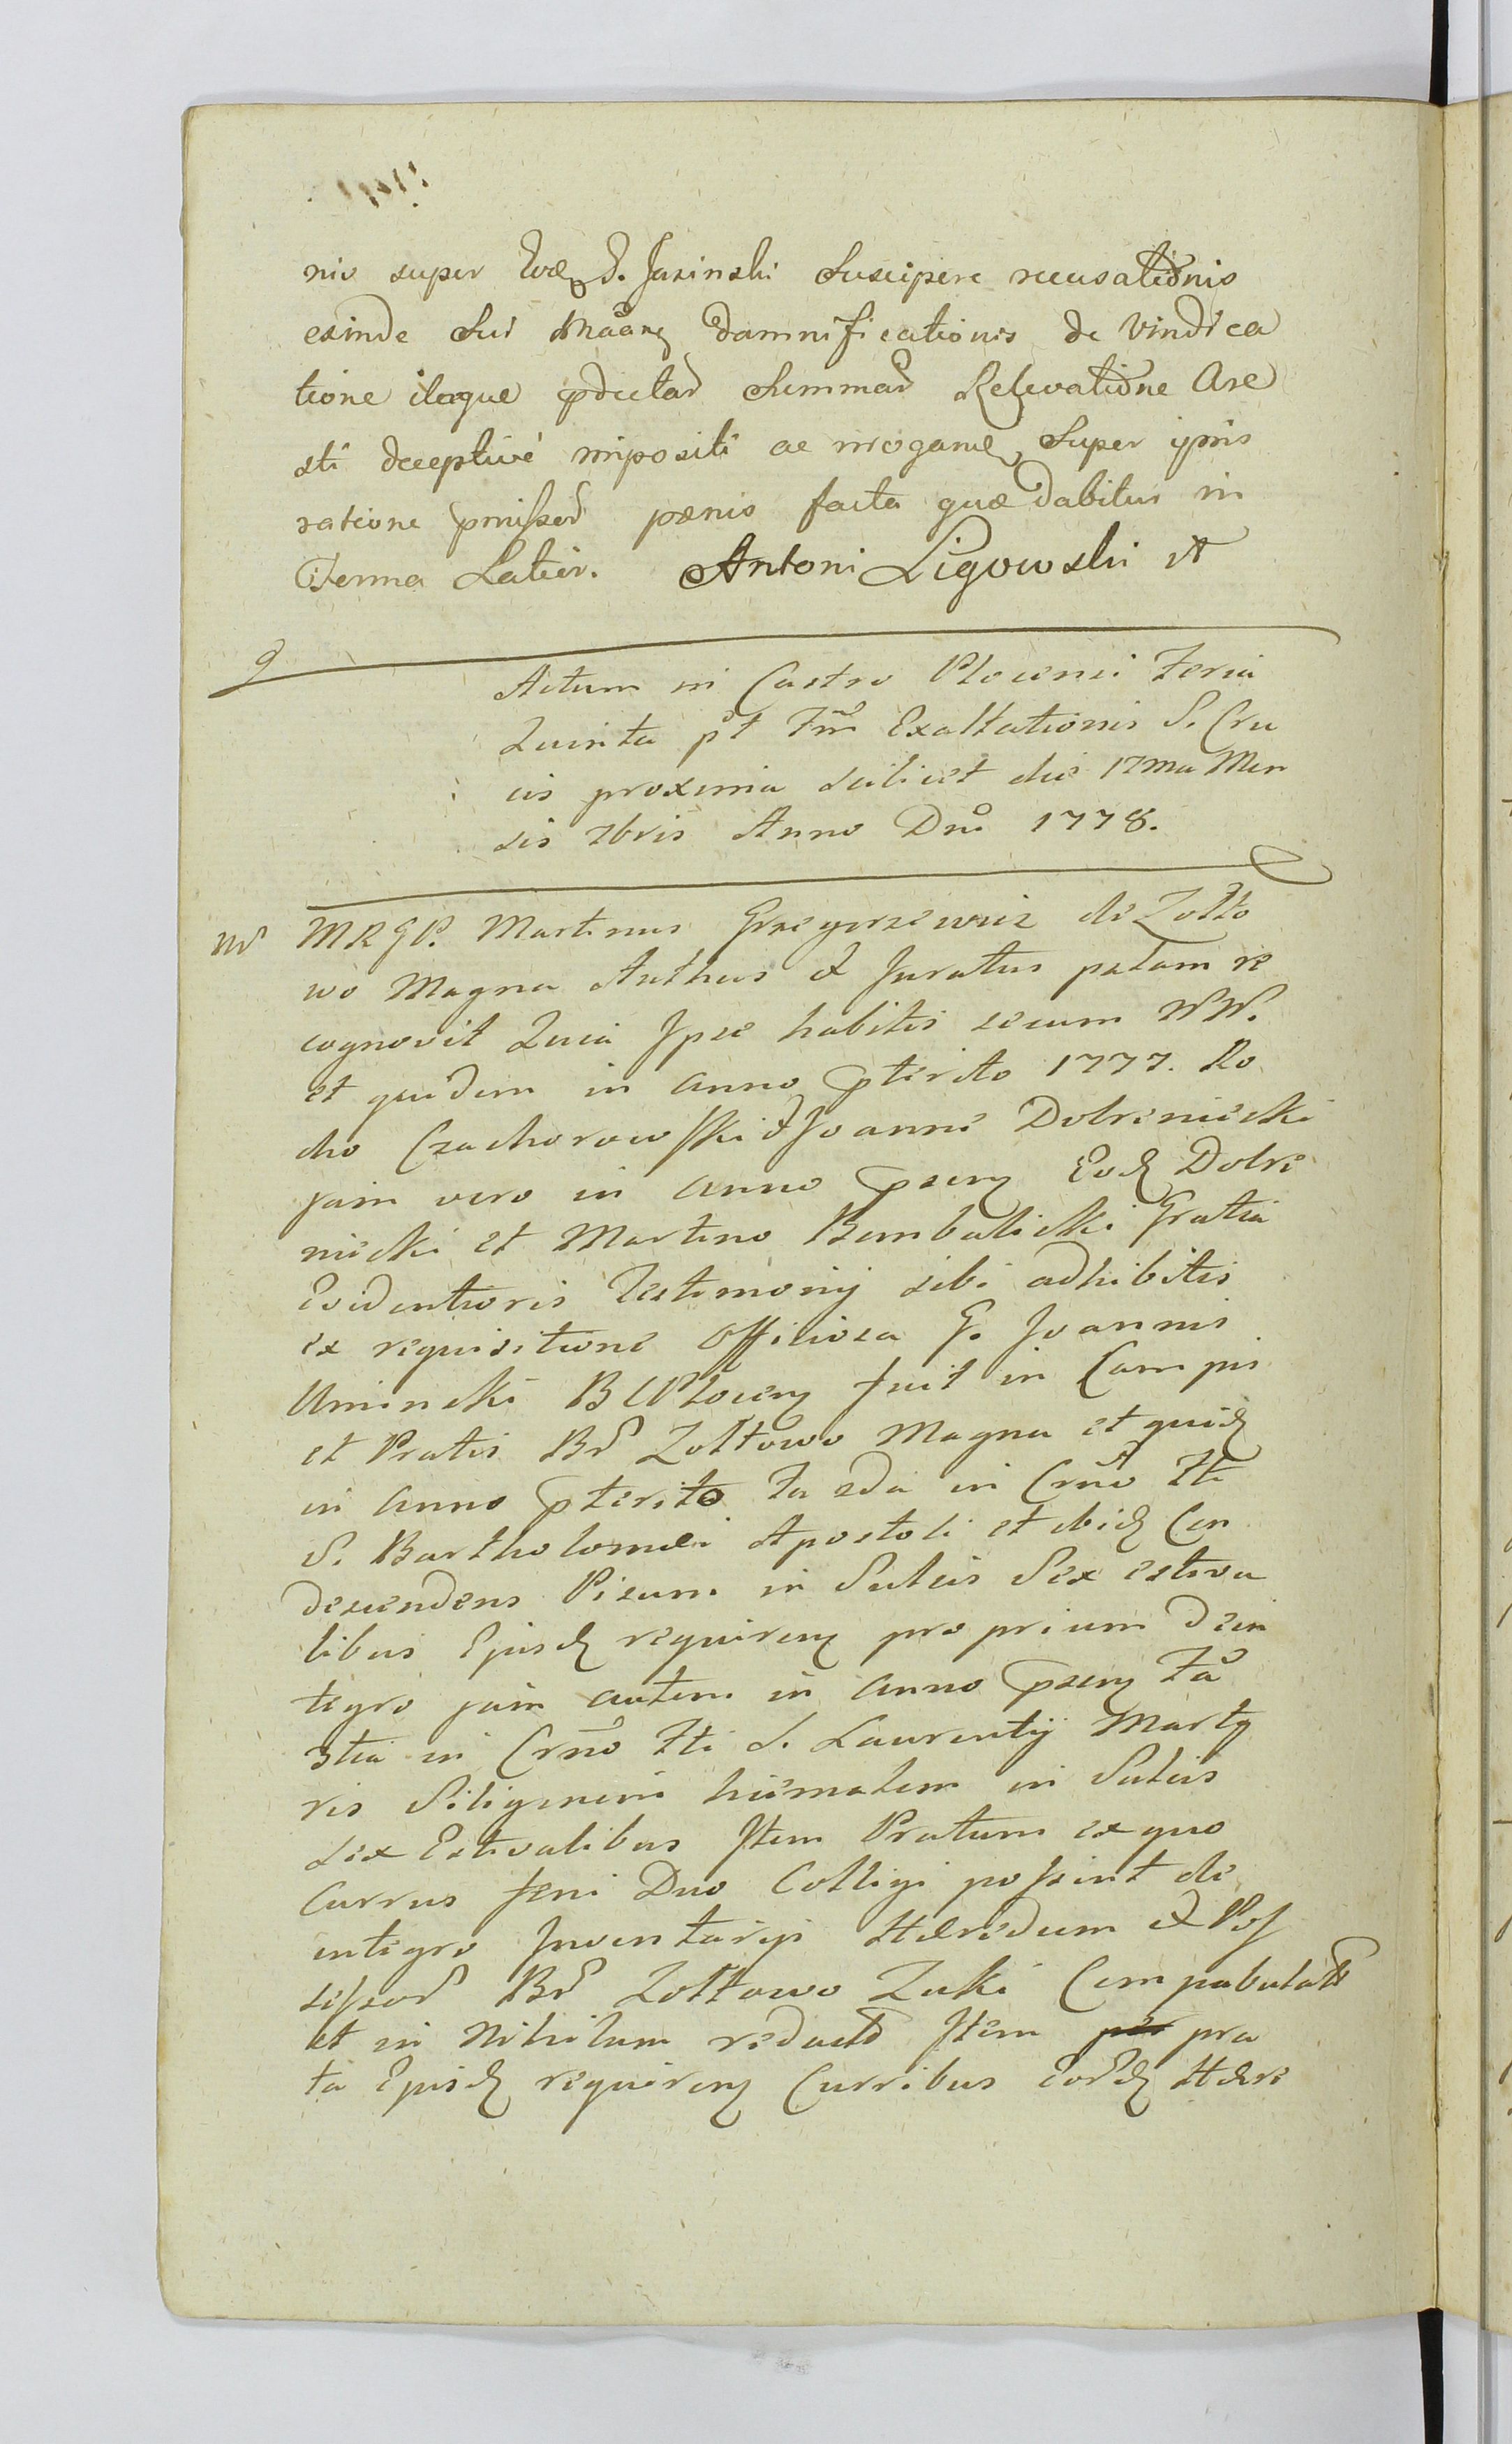 nio super Eod G. Jasinski Suscipere recusationis
exinde Sui Maane damnificationis de Vindica
tione itaque pdictar Summar Relevatione Are
sti deceptive impositi ac irrogand Super ipsis
ratione pmissor pænis facta quæ dabitur in
Termo Latior. Antoni Ligowski
Actum in Castro Plocensi Feria
Quinta pt Fm Exaltationis S. Cru
cis proxima scilicet die 17ma Men
sis 7bris Anno Dni 1778.
MRGP. Martinus Grzegorzewicz de Zołto
wo Magna Authus & Juratus palam re
cognovit Quia Ipse habitis secum NN.
et quidem in anno pterito 1777. Ro
cho Czachorowski & Joanne Dobreniecki
jam vero in anno psen Eod Dobre
niecki et Martino Bembalicki Gratia
Evidentioris Testimonij sibi adhibitis
ex requisitione Officiosa G. Joannis
Uminski BCPlocen fuit in Campis
et Pratis Br Zołtowo Magna et quid
in anno pterito fa 2da in Crno Fti
S. Bartholomæi Apostoli et ibid Con
descendens Pisum in Sulcis Sex estiva
libus Ejusd requiren proprium dein
tegro jam autem in anno psen Fa
3tia in Crno Fti S. Laurentij Marty
ris Siliginem hiemalem in Sulcis
sex Estivalibus Item Pratum ex quo
Currus feni Duo Colligi possint de
integro Inventarijs Hæredum & Pos
sessor Br Zołtowo Zuki Compabulat
et in Nihilum redacto Item pra
ta Ejusd requiren Curribus Eord Hære